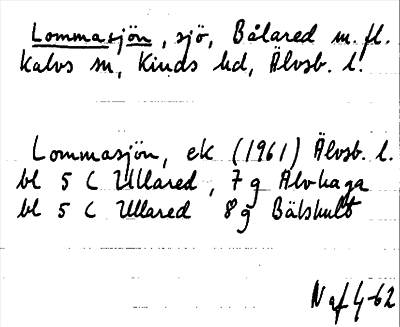 Lommasjön, sjö, Bålared m. fl.
Kalvs sn, Kinds hd, Älvsb. l.
Lommasjön, ek (1961) Älvsb. l.
bl 5 C Ullared, 7 g Älvhaga
bl 5 C Ullared 8g Bälshult
N af 4-62